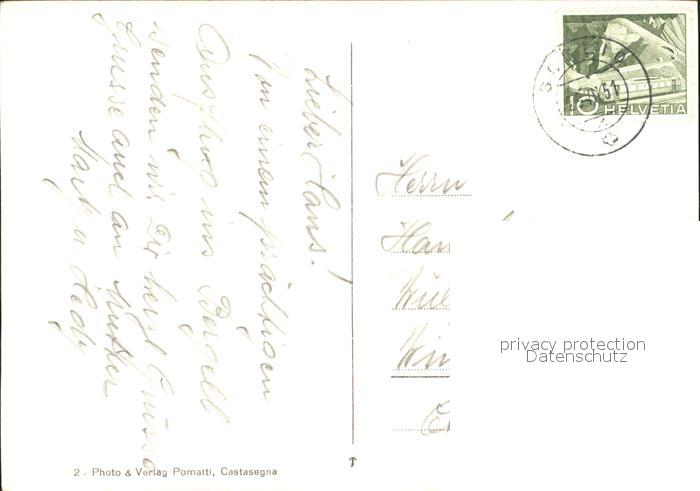 Lieber Hans!
Von einem prächtigen
Ausflug ins Bergell
senden wir Dir herzl. Grüsse
Grüsse auch an Mutter
u Hedy
Herrn
Han
Wül
Win
privacy protection
Datenschutz
10 HELVETIA
SOGLIO
2 - Photo & Verlag Pomatti, Castasegna